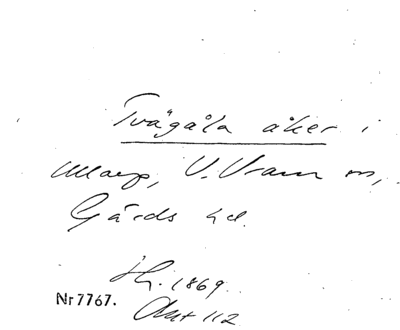 Tvägåla åker i
Maarp, V. Vram sn,
Gärds hd.
1869.
Nr 7767.
Akt 112